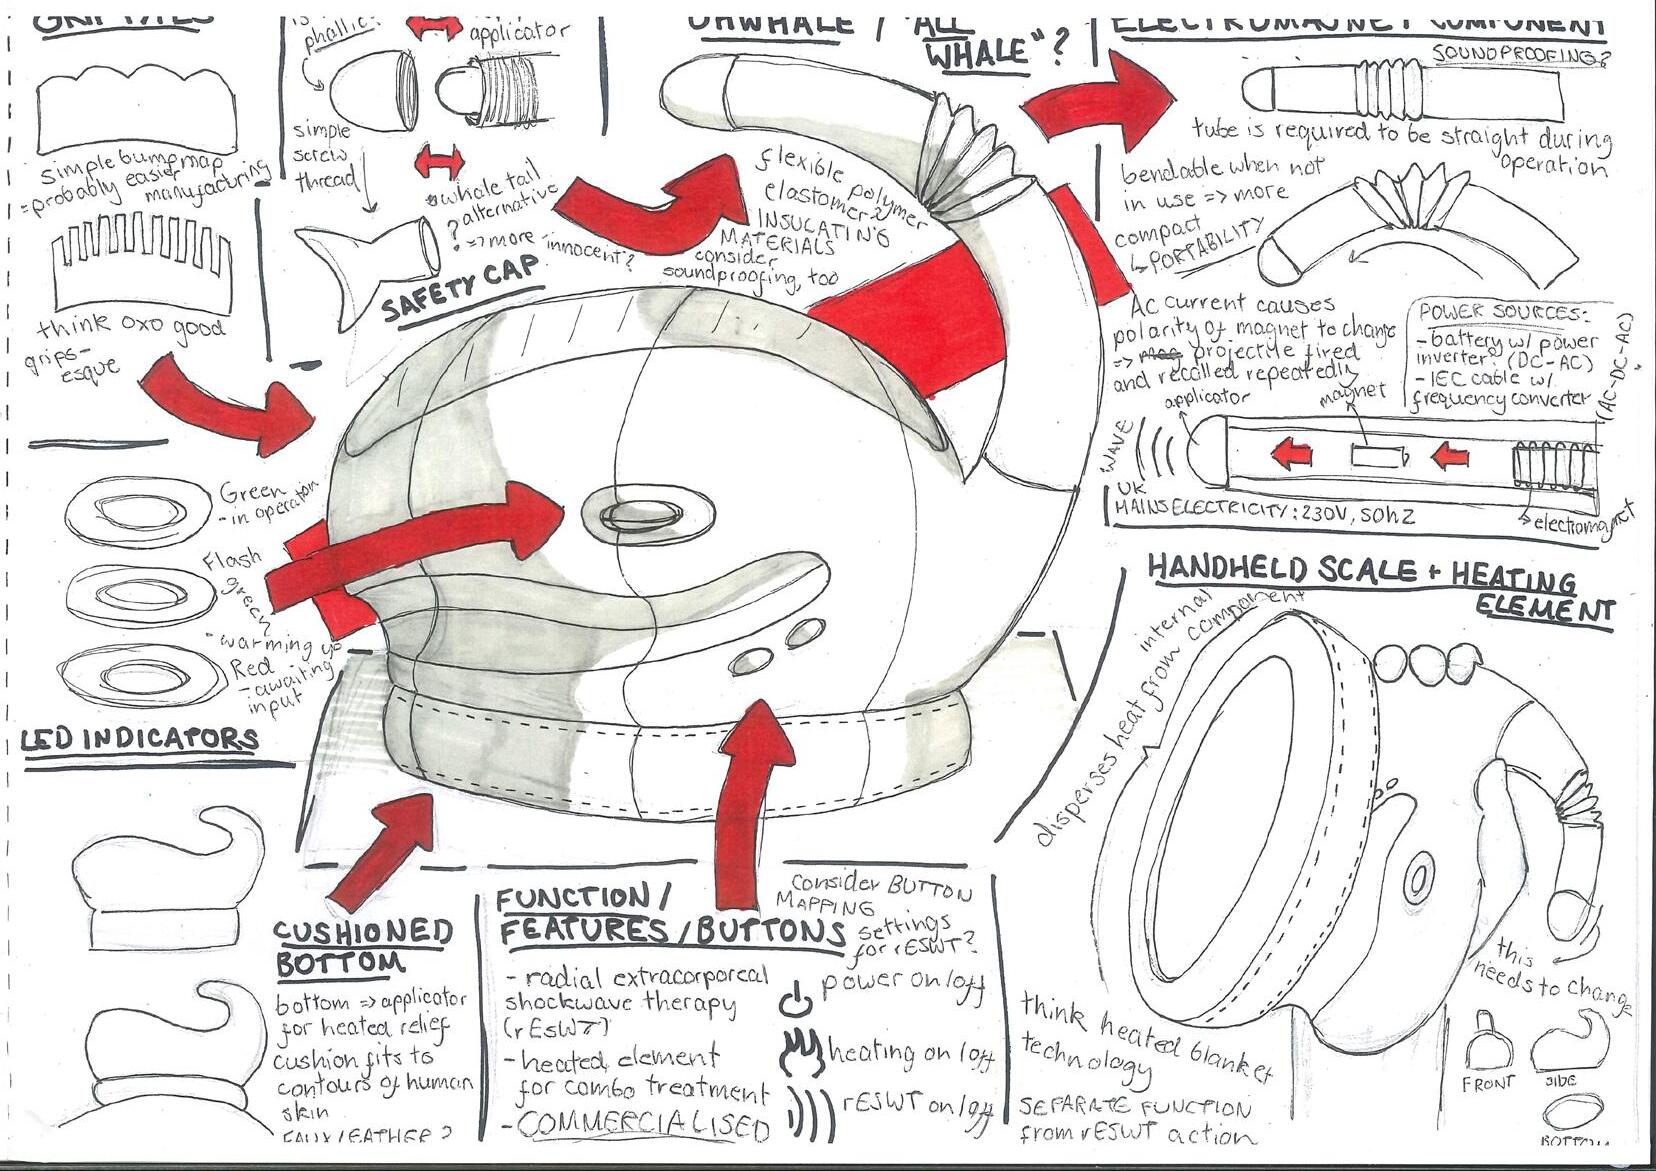 GRIP TYPES
simple bumpmap
=probably easier
manufacturing
think oxo good
grips-
esque
is
phallic?
applicator
simple
screw
thread
whale tail
alternative
? => more "innocent"?
SAFETY CAP
UHWHALE / "ALL
WHALE"?
flexible polymer
elastomer?
INSULATING
MATERIALS
consider
soundproofing, too
ELECTROMAGNET COMPONENT
SOUNDPROOFING?
tube is required to be straight during
operation
bendable when not
in use => more
compact
↳ PORTABILITY
AC current causes
polarity of magnet to change
=> projectile fired
and recalled repeatedly
applicator
magnet
POWER SOURCES:
- battery w/ power
inverter? (DC-AC)
- IEC cable w/
frequency converter
(AC-DC-AC)
WAVE
electromagnet
UK
MAINS ELECTRICITY: 230V, 50hZ
Green
- in operation
Flash
green
- warming up
Red
- awaiting
input
LED INDICATORS
HANDHELD SCALE + HEATING
ELEMENT
disperses heat from component
internal
this
needs to change
FRONT
SIDE
BOTTOM
think heated blanket
technology
SEPARATE FUNCTION
from rESWT action
CUSHIONED
BOTTOM
bottom => applicator
for heated relief
cushion fits to
contours of human
skin
FAUX LEATHER?
FUNCTION /
FEATURES / BUTTONS
- radial extracorporeal
shockwave therapy
(rESWT)
- heated element
for combo treatment
- COMMERCIALISED
Consider BUTTON
MAPPING
settings
for rESWT?
power on/off
heating on/off
rESWT on/off